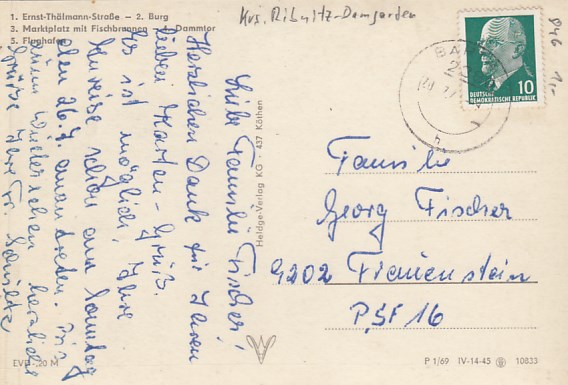 1. Ernst-Thälmann-Straße – 2. Burg
3. Marktplatz mit Fischbrunnen – 4. Dammtor
5. Flughafen
Krs. Ribnitz-Damgarten
DEUTSCHE
DEMOKRATISCHE REPUBLIK
10
BA
Liebe Familie Fischer!
Herzlichen Dank für Ihren
lieben Karten-Gruß.
Es ist möglich, Ihre
Anreise schon am Sonntag
den 26.7. anzutreten. Bis
zum Wiedersehen herzliche
Grüße Ihre Fr. Schultz
Heldge-Verlag KG · 437 Köthen
Familie
Georg Fischer
9202 Frauenstein
PSF 16
EVP –.20 M
P 1/69 IV-14-45 10833